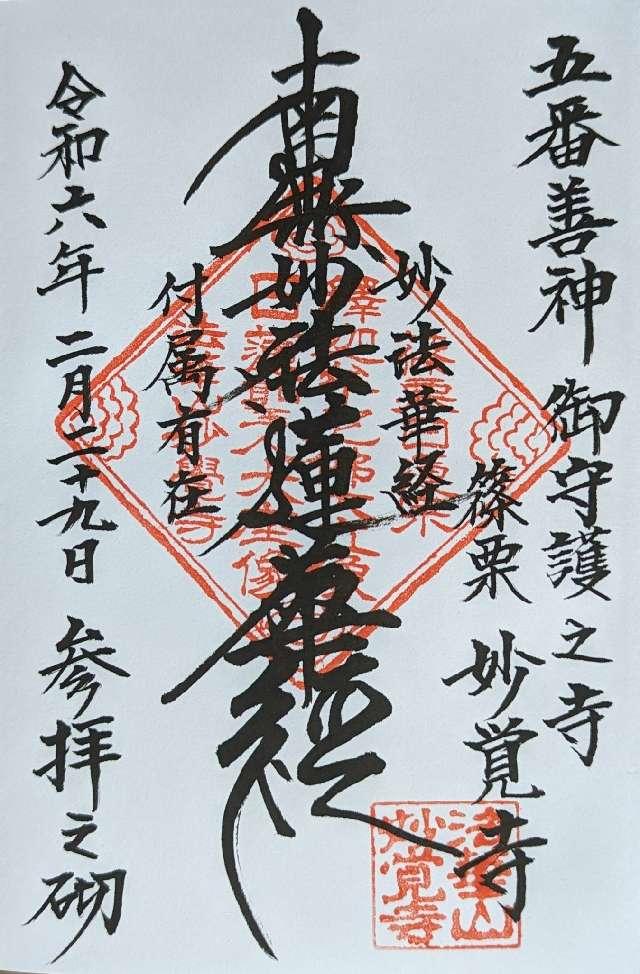 五番善神 御守護之寺
篠栗 妙覚寺
妙法華経
南無妙法蓮華経
付属有在
令和六年 二月二十九日 参拝之砌
法華山
妙覚寺